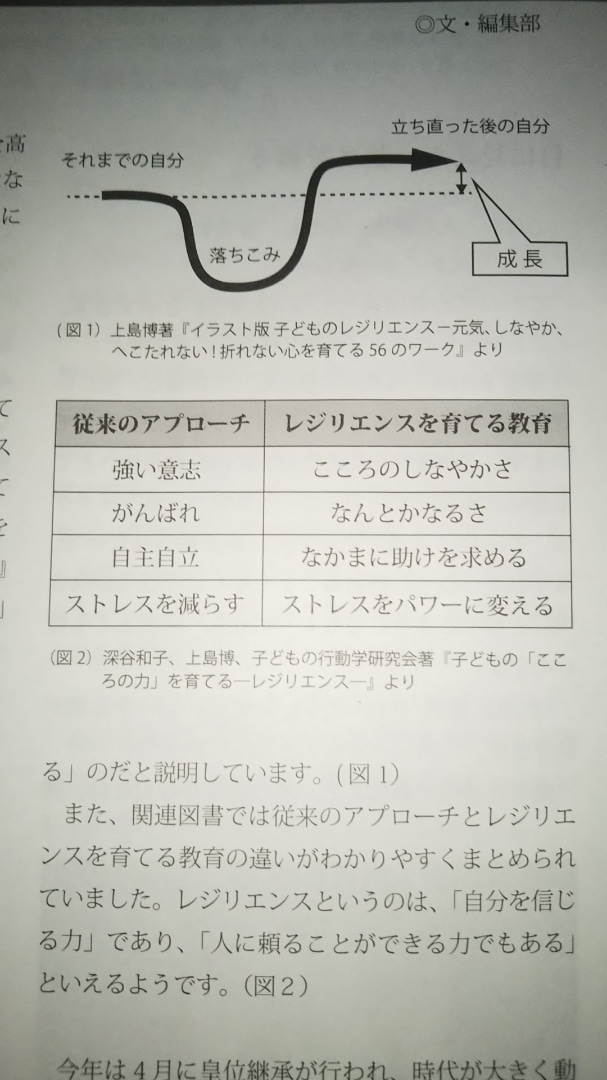 ◎文・編集部
高
な
に
立ち直った後の自分
それまでの自分
落ちこみ
成長
(図1) 上島博著『イラスト版 子どものレジリエンスー元気、しなやか、
へこたれない!折れない心を育てる56のワーク』より
て
ス
て
を
』
」
従来のアプローチ レジリエンスを育てる教育
強い意志 こころのしなやかさ
がんばれ なんとかなるさ
自主自立 なかまに助けを求める
ストレスを減らす ストレスをパワーに変える
(図2) 深谷和子、上島博、子どもの行動学研究会著『子どもの「ここ
ろの力」を育てる―レジリエンス―』より
る」のだと説明しています。(図1)
また、関連図書では従来のアプローチとレジリエ
ンスを育てる教育の違いがわかりやすくまとめられ
ていました。レジリエンスというのは、「自分を信じ
る力」であり、「人に頼ることができる力でもある」
といえるようです。(図2)
今年は4月に皇位継承が行われ、時代が大きく動